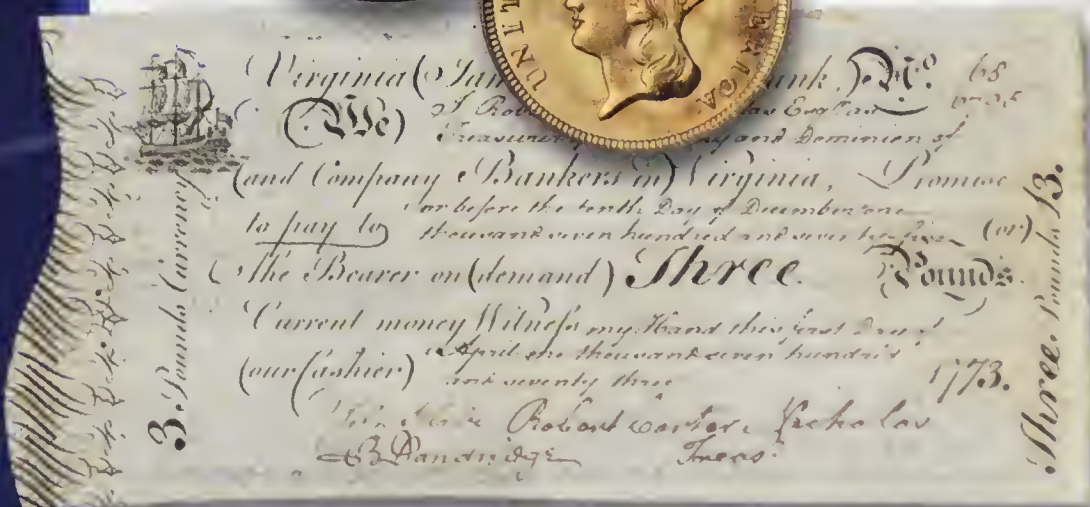 UNIT
ERICA
Virginia (
ank.) No. 68
We)
Treasurer
and Dominion of
(and Company Bankers in) Virginia, Promise
or before the tenth Day of December one
to pay to
thousand seven hundred and seventy five (or)
the Bearer on (demand) Three Pounds.
Current money Witness my Hand this first Day of
April one thousand seven hundred
(our Cashier) and seventy three 1773.
Robert Carter Nicholas
B Dandridge Treas.
3. Pounds Currency
Three. Pounds 13.